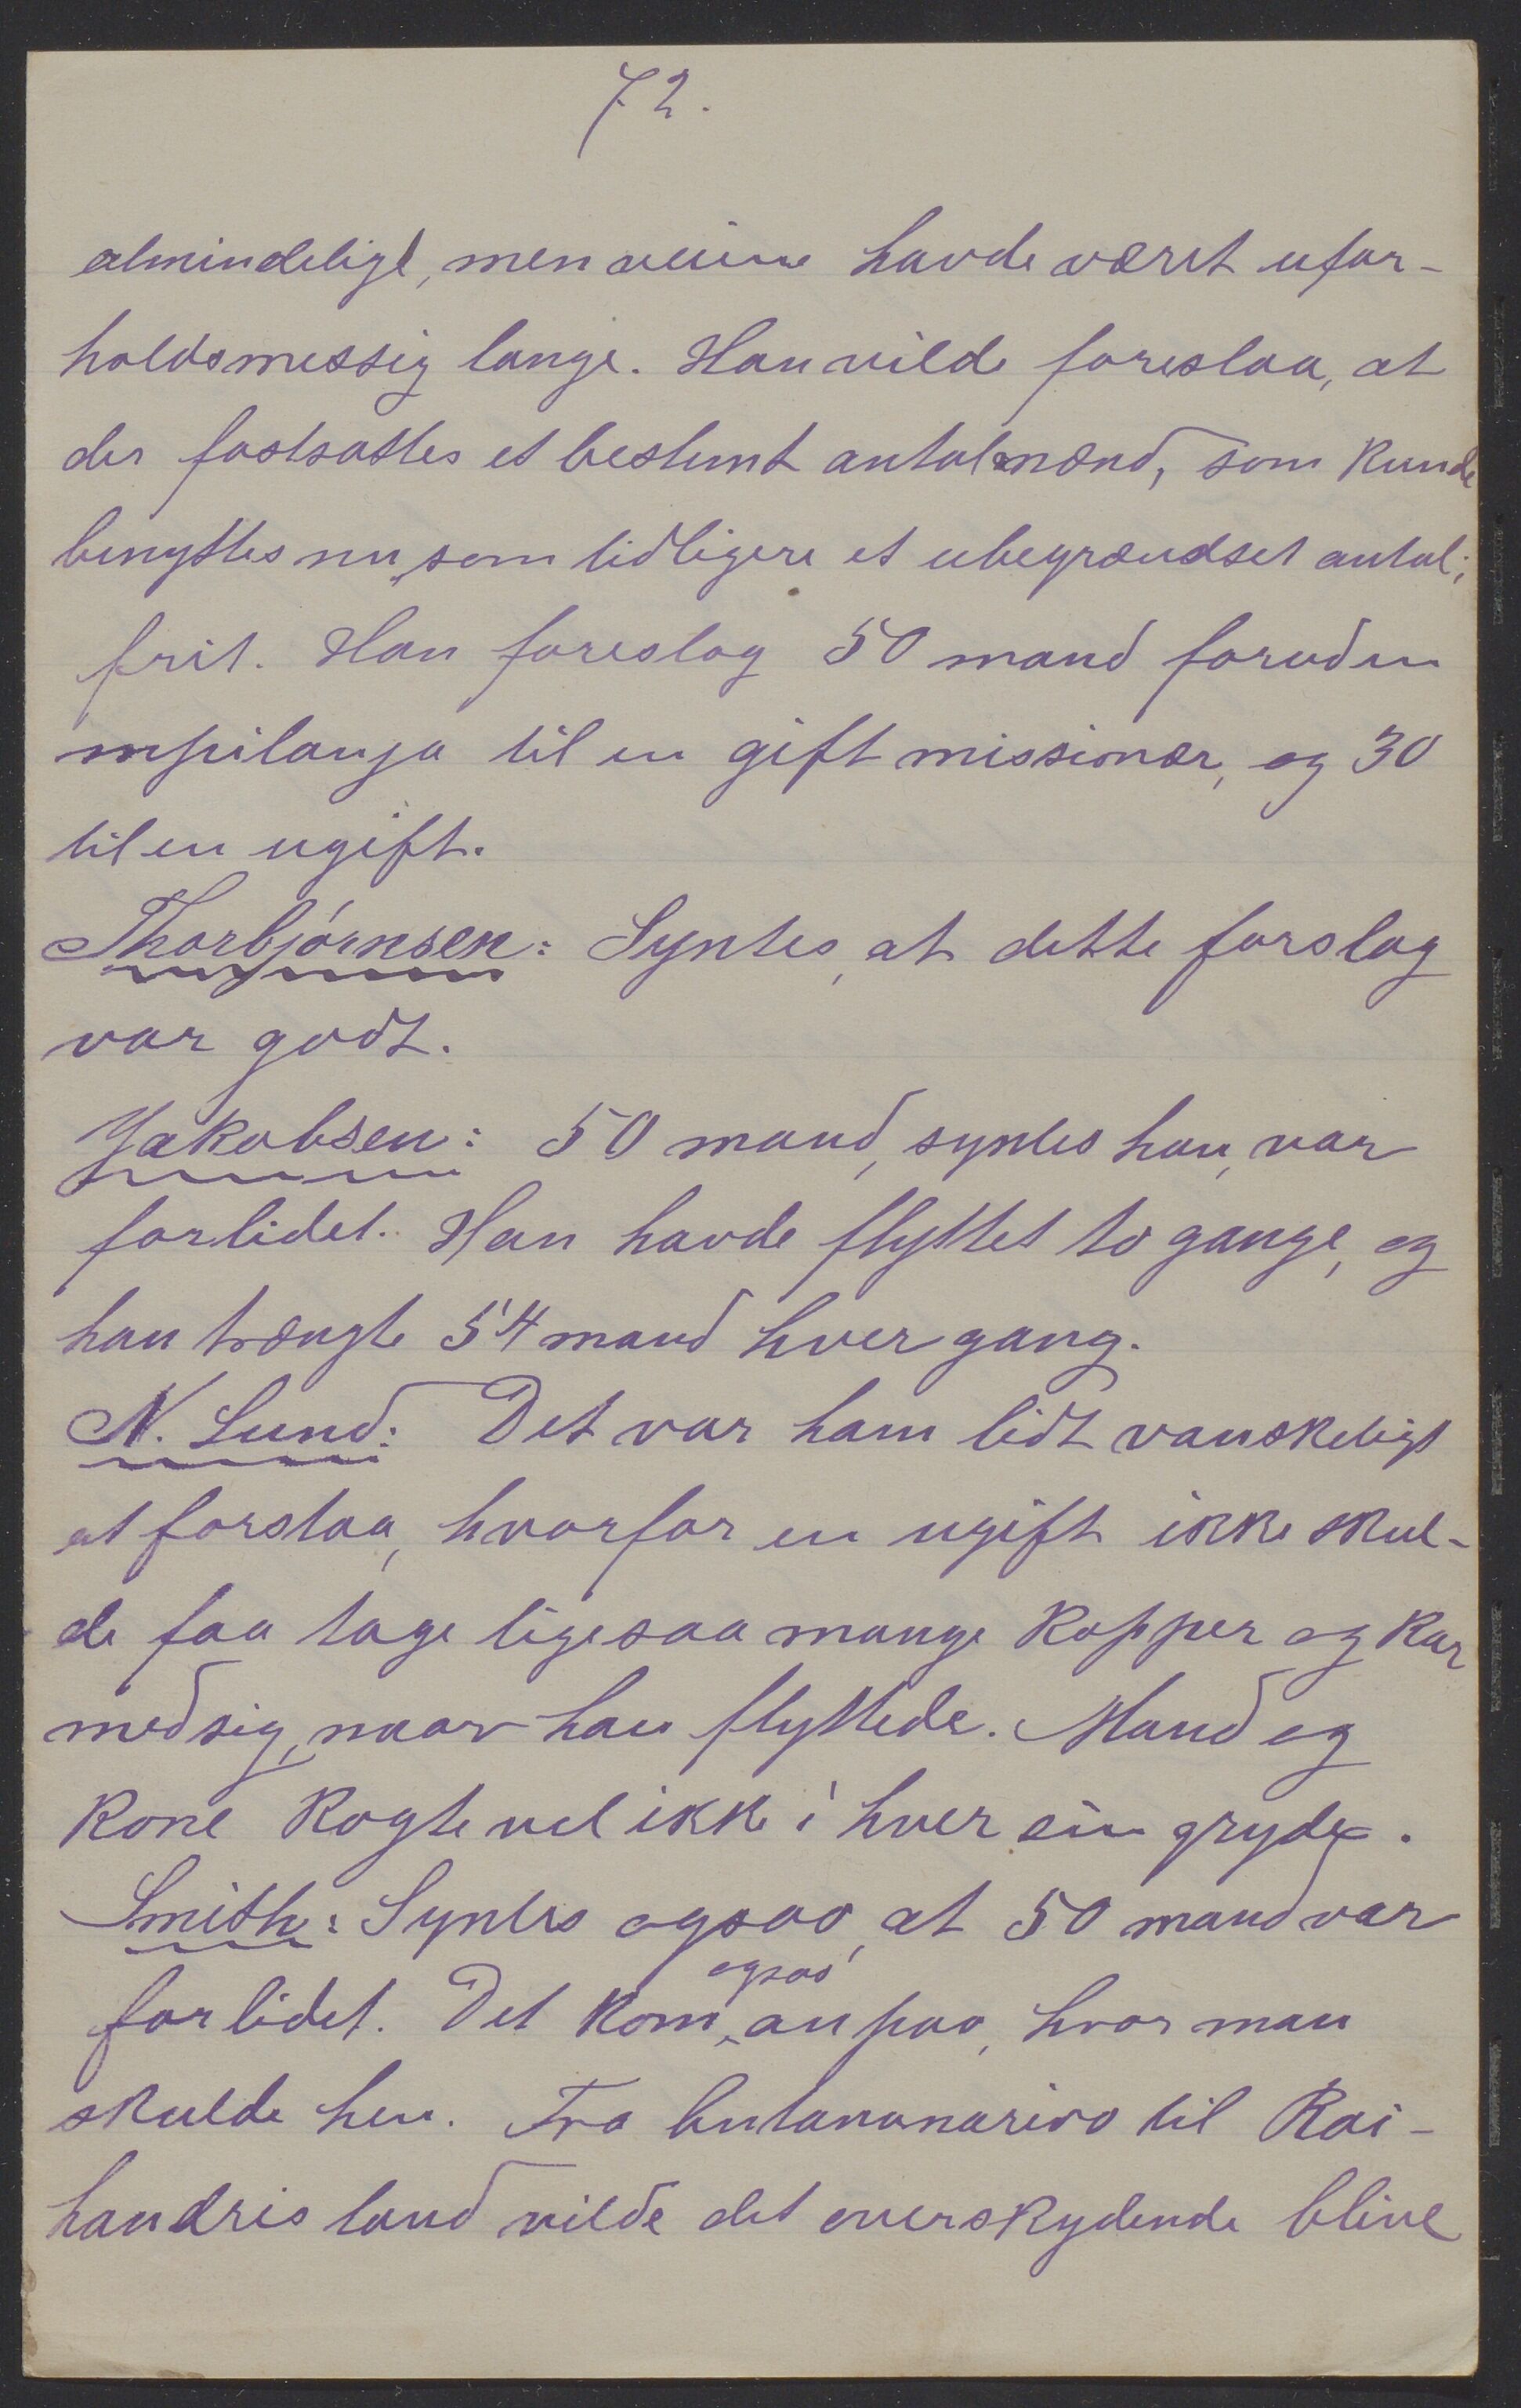 72.
almindeligt, men veiene havde været ufor-
holdsmessig lange. Han vilde foreslaa, at
der fastsattes et bestemt antal mænd, som kunde
benyttes nu, som tidligere et ubegrændset antal;
frit. Han foreslog 50 mand foruden
mpilanja til en gift missionær, og 30
til en ugift.
Thorbjørnsen: Syntes, at dette forslag
var godt.
Jakobsen: 50 mand, syntes han, var
forlidet. Han havde flyttet to gange, og
han trængte 54 mand hver gang.
N. Lund: Det var ham lidt vanskeligt
at forstaa, hvorfor en ugift ikke skul-
de faa tage ligesaa mange kopper og kar
med sig, naar han flyttede. Mand og
kone kogte vel ikke i hver sin gryde.
Smith: Syntes ogsaa, at 50 mand var
for lidet. Det kom ogsaa an paa, hvor man
skulde hen. Fra Antananarivo til Rai-
handris land vilde det overskydende blive